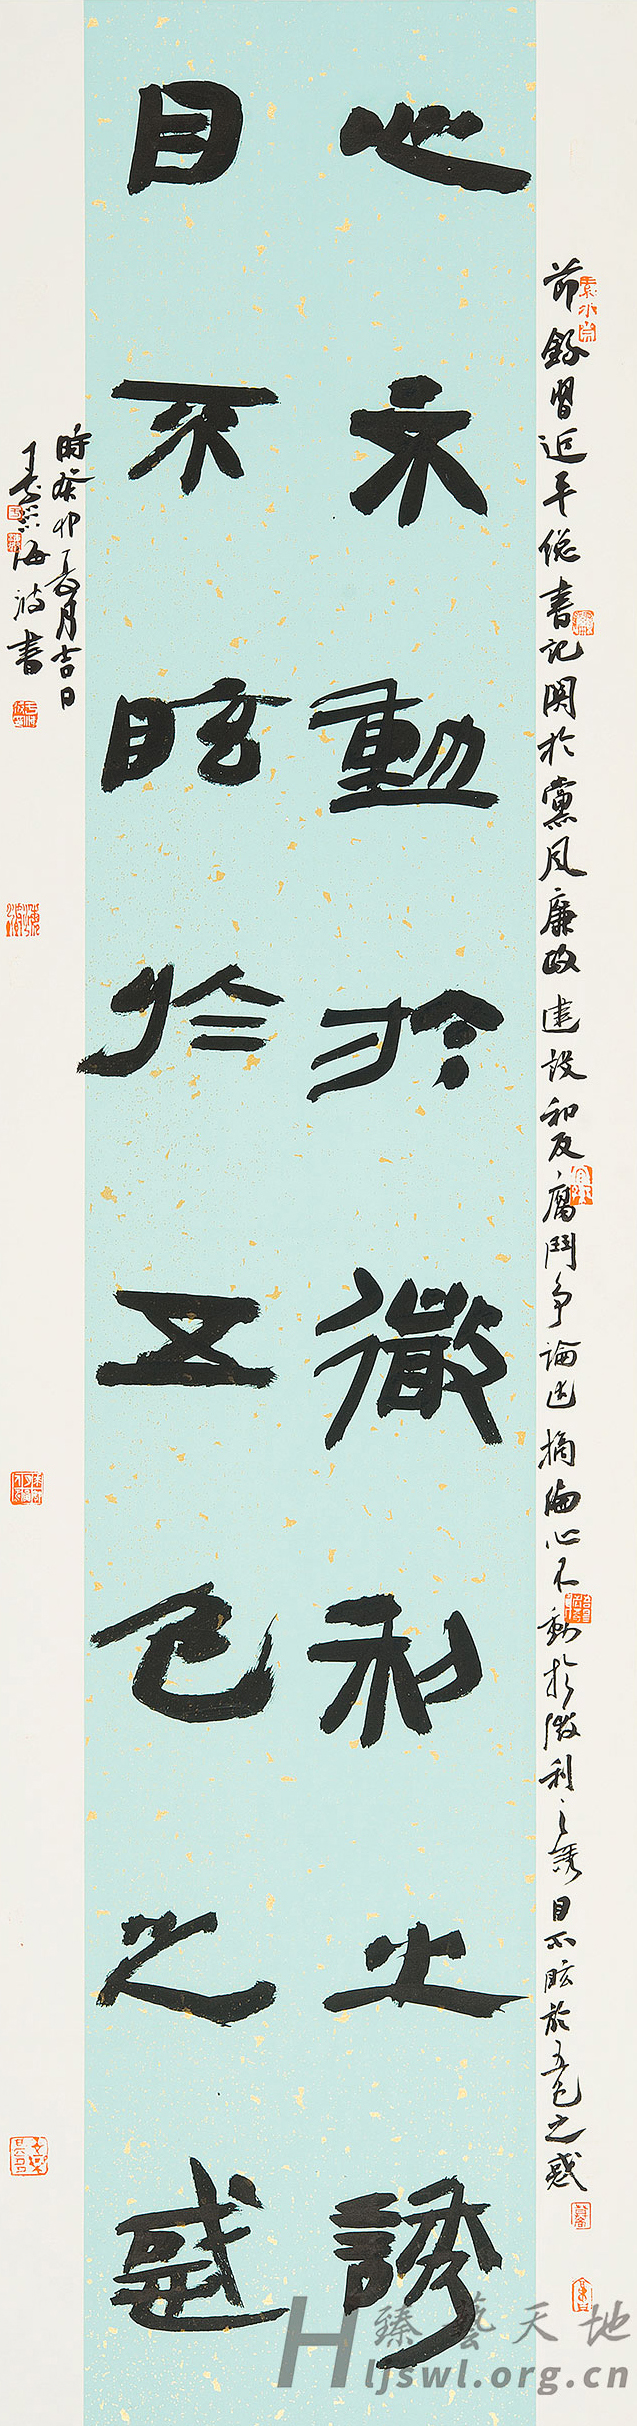 心不動於微利之誘
目不眩於五色之惑
節錄習近平總書記関於黨風廉政建設和反腐鬥争論述摘編心不動於微利之誘目不眩於五色之惑
時癸卯夏月吉日
海波書
臻藝天地
Hljswl.org.cn